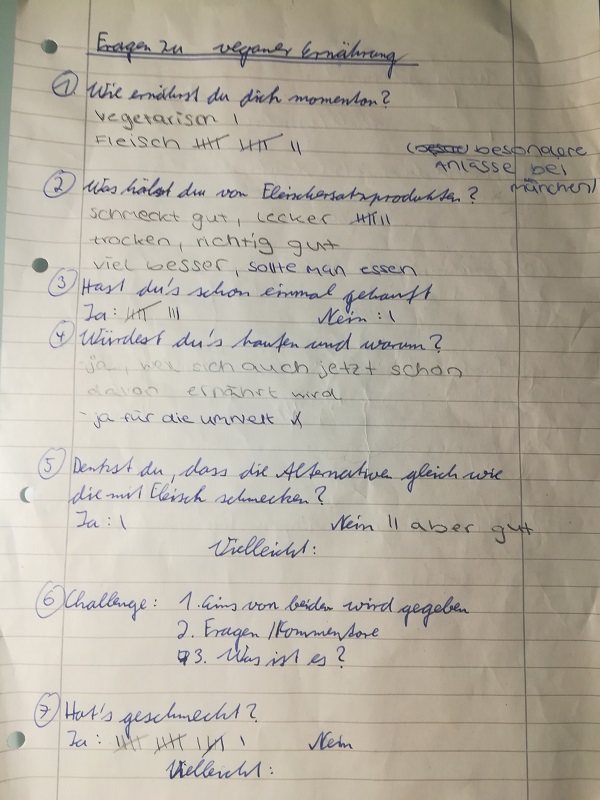 Fragen zu veganer Ernährung
① Wie ernährst du dich momentan?
vegetarisch |
Fleisch |||| |||| ||
(besondere
Anlässe bei
manchen)
② Was hälst du von Fleischersatzprodukten?
schmeckt gut, lecker |||| ||
trocken, richtig gut
viel besser, sollte man essen
③ Hast du's schon einmal gekauft
Ja: |||| |||
Nein: |
④ Würdest du's kaufen und warum?
- ja, weil sich auch jetzt schon
davon ernährt wird
- ja für die umwelt
⑤ Denkst du, dass die Alternativen gleich wie
die mit Fleisch schmecken?
Ja: |
Nein || aber gut
Vielleicht:
⑥ Challenge: 1. Eins von beiden wird gegeben
2. Fragen / Kommentare
3. Was ist es?
⑦ Hat's geschmeckt?
Ja: |||| |||| |||| |
Nein
Vielleicht: